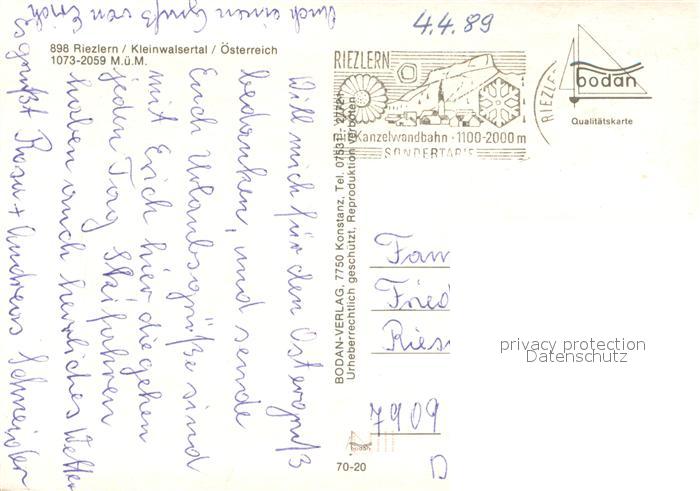 Auch einen Gruß von Erich
4.4.89
898 Riezlern / Kleinwalsertal / Österreich
1073-2059 M.ü.M.
Will mich für den Ostergruß
bedanken, und sende
Euch Urlaubsgrüße sind
mit Erich hier die gehen
jeden Tag Skifahren
haben auch herrliches Wetter
Es grüßt Rosa + Andreas Schneider
BODAN-VERLAG, 7750 Konstanz, Tel. 07531-2772
Urheberrechtlich geschützt, Reproduktion verboten
RIEZLERN
Kanzelwandbahn · 1100-2000 m
SONDERTARIF
RIEZLE
bodan
Qualitätskarte
Fam
Fried
Ries
privacy protection
Datenschutz
7909
D
bodan
70-20